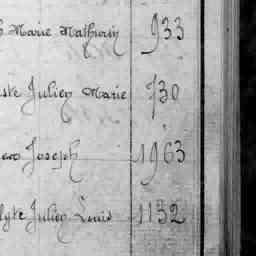 Marie Mathurin 933
Julien Marie 730
Joseph 1963
Julien Louis 1132